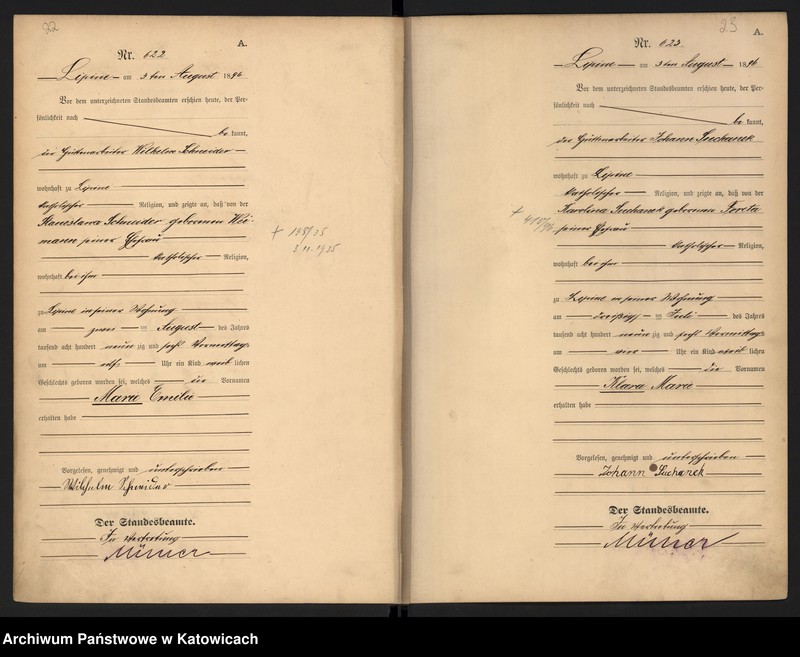 22
A.
Nr. 622
Lipine am 3ten August 1896
Vor dem unterzeichneten Standesbeamten erschien heute, der Per-
sönlichkeit nach
be kannt,
der Hüttenarbeiter Wilhelm Schneider
wohnhaft zu Lipine
katholischer Religion, und zeigte an, daß von der
Schneider geborenen
seiner Ehefrau
katholischer Religion,
wohnhaft bei ihm
zu Lipine in seiner Wohnung
am zwei ten August des Jahres
tausend acht hundert neun zig und sechs Vormittags
um Uhr ein Kind weib lichen
Geschlechts geboren worden sei, welches die Vornamen
Marie Emilie
erhalten habe
Vorgelesen, genehmigt und unterschrieben
Wilhelm Schneider
Der Standesbeamte.
In Vertretung
+ 195/35
23
A.
Nr. 623
Lipine am 3ten August 1896
Vor dem unterzeichneten Standesbeamten erschien heute, der Per-
sönlichkeit nach
be kannt,
der Hüttenarbeiter Johann Suchanek
wohnhaft zu Lipine
katholischer Religion, und zeigte an, daß von der
Karolina Suchanek geborenen
seiner Ehefrau
katholischer Religion,
wohnhaft bei ihm
zu Lipine in seiner Wohnung
am dreißig ten Juli des Jahres
tausend acht hundert neun zig und sechs Vormittags
um vier Uhr ein Kind weib lichen
Geschlechts geboren worden sei, welches die Vornamen
Klara Marie
erhalten habe
Vorgelesen, genehmigt und unterschrieben
Johann Suchanek
Der Standesbeamte.
In Vertretung
Archiwum Państwowe w Katowicach